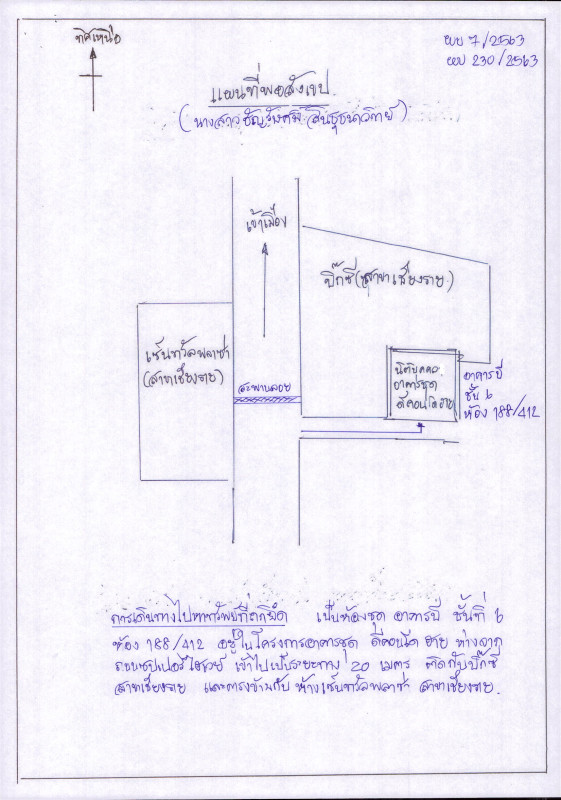 ทิศเหนือ
ผบ 7/2563
ผบ 230/2563
แผนที่พอสังเขป
(นางสาว
เข้าเมือง
บิ๊กซี (สาขาเชียงราย)
เซ็นทรัลพลาซ่า
(สาขาเชียงราย)
สะพานลอย
นิติบุคคล
อาคารชุด
ดีคอนโด ฮาย
อาคารบี
ชั้น ๖
ห้อง 188/412
การเดินทางไปหาทรัพย์ที่ถูกยึด เป็นห้องชุด อาคารบี ชั้นที่ ๖
ห้อง 188/412 อยู่ในโครงการอาคารชุด ดีคอนโด ฮาย ห่างจาก
ถนนซุปเปอร์ไฮเวย์ เข้าไปเป็นระยะทาง 20 เมตร ติดกับบิ๊กซี
สาขาเชียงราย และตรงข้ามกับ ห้างเซ็นทรัลพลาซ่า สาขาเชียงราย.